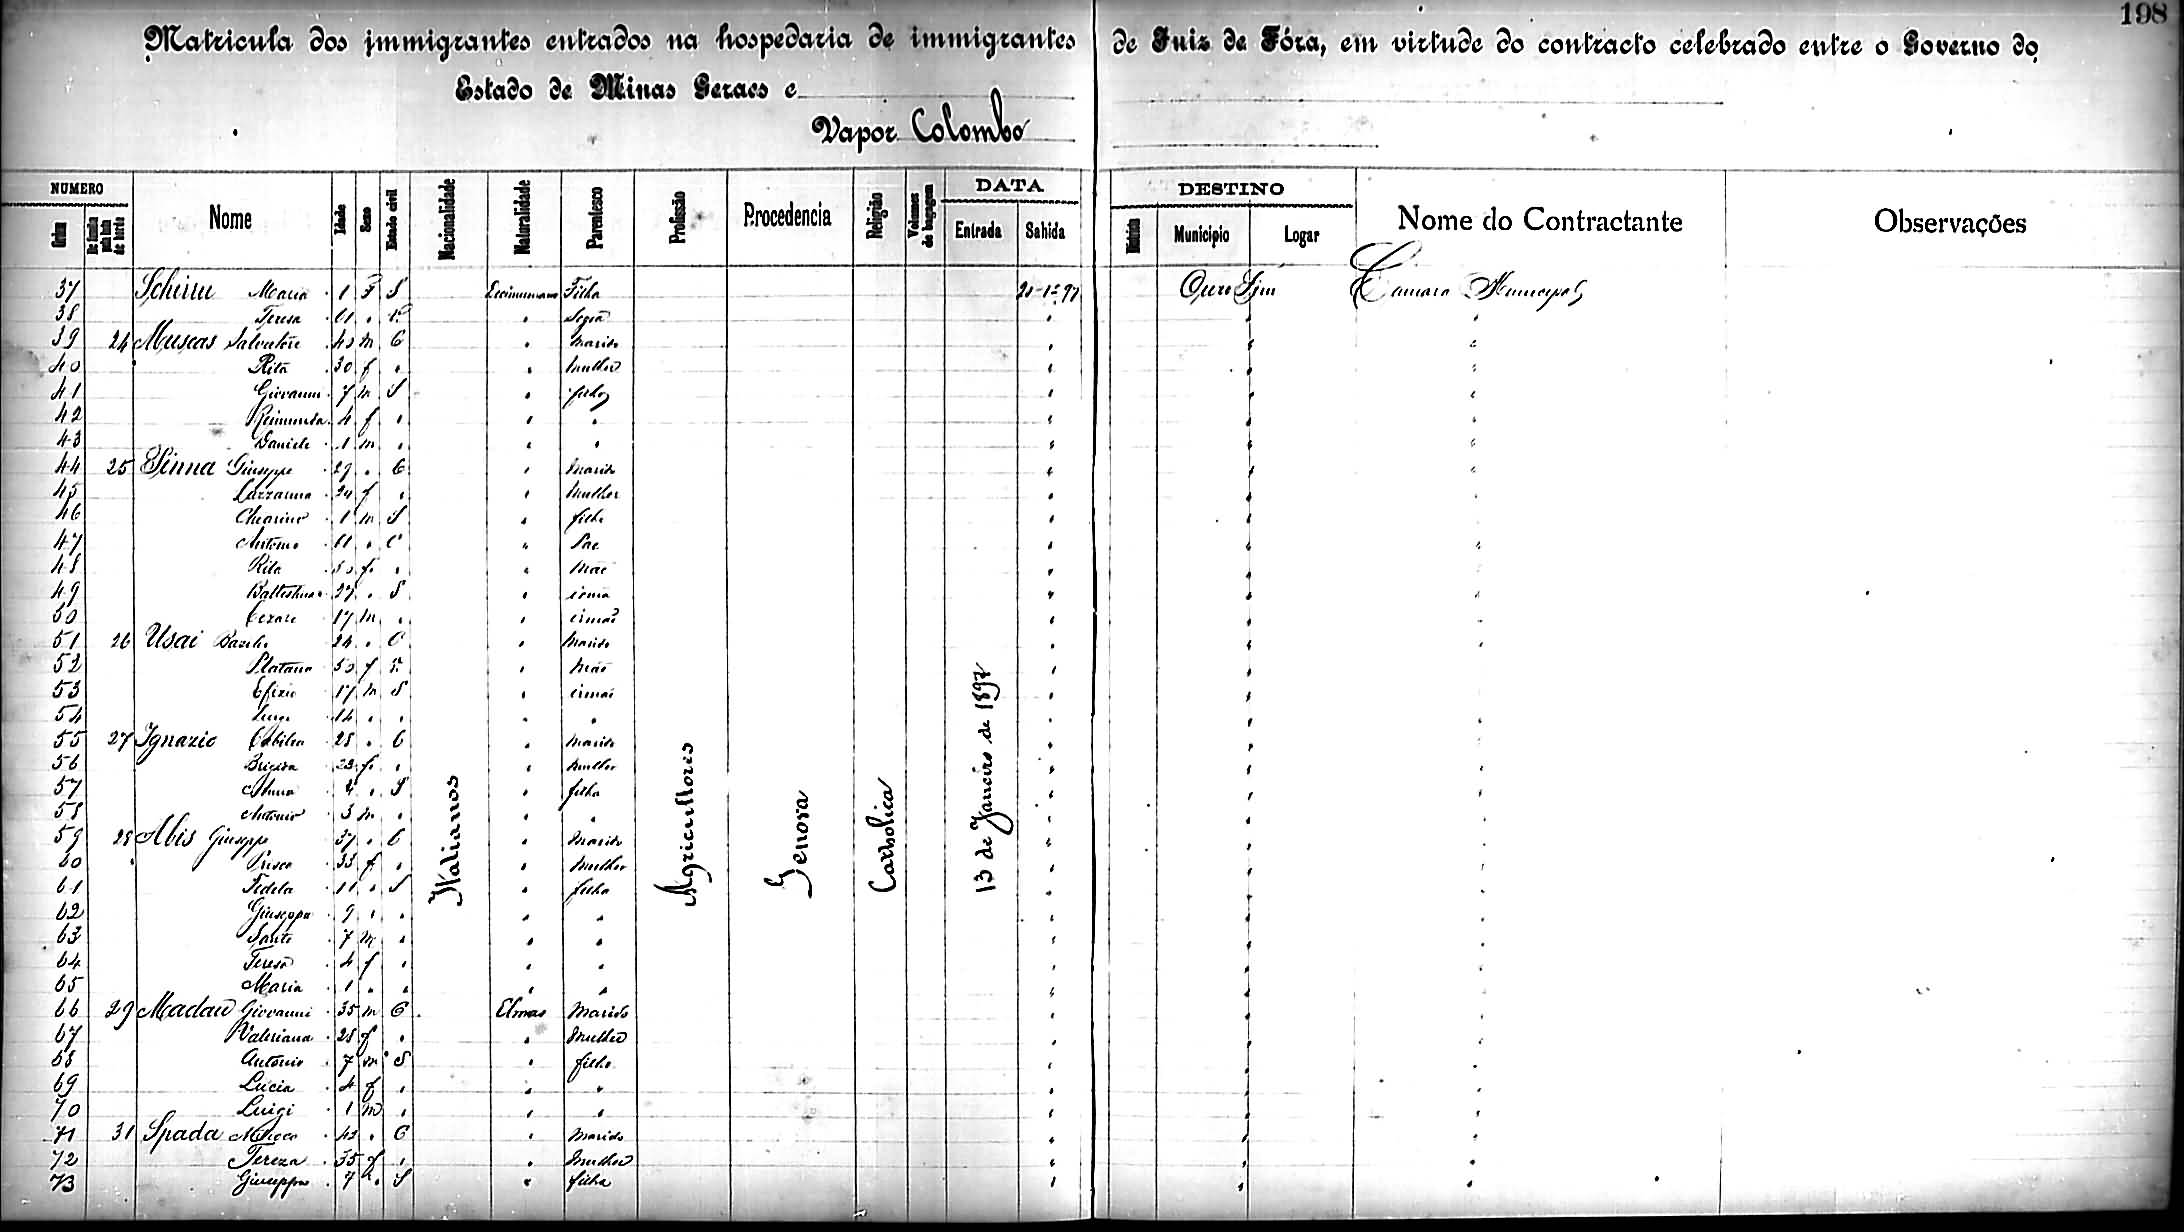 198
Matricula dos immigrantes entrados na hospedaria de immigrantes de Juiz de Fóra, em virtude do contracto celebrado entre o Governo do
Estado de Minas Geraes e
Vapor Colombo
NUMERO Nome Idade Sexo Estado civil Nacionalidade Naturalidade Parentesco Profissão Procedencia Religião Volumes de bagagem DATA DESTINO Nome do Contractante Observações
Ordem De familia pela lista de bordo Entrada Sahida Districto Municipio Logar
Italianos Agricultores Genova Catholica 13 de Janeiro de 1897
37 Schirru Maria 1 F S Filha Ouro Fim Camara Municipal
38 Teresa " "
39 24 Muscas Salvatore 40 m C " Marido "
40 Rita 30 f " " Mulher "
41 Giovanni 7 m S " filho "
42 Reimunda 4 f " " " "
43 Daniele 1 m " " " "
44 25 Sinna Giuseppe 29 " C " Marido "
45 Lazzarina 24 f " " Mulher "
46 1 m S " filho "
47 Antonio " C " Pae "
48 Rita f " " Mãe "
49 27 " S " irmã "
50 Cezare 17 m " " irmão "
51 26 Usai Bazilio 24 " C " Marido "
52 Platana 50 f " Mãe "
53 Efizio 17 m S " irmão "
54 Luigi 14 " " " " "
55 27 Ignazio 28 " C " Marido "
56 Brigida 23 f " " Mulher "
57 Anna 4 " S " filha "
58 Antonio 3 m " " " "
59 28 Abis Giuseppe 37 " C " Marido "
60 Prisca 33 f " " Mulher "
61 Fedela 11 " S " filha "
62 Giuseppa 9 " " " " "
63 Sante 7 m " " " "
64 Teresa 4 f " " " "
65 Maria 1 " " " " "
66 29 Madau Giovanni 35 m C Elmas Marido "
67 Valeriana 28 f " " Mulher "
68 Antonio 7 m S " filho "
69 Lucia 4 f " " " "
70 Luigi 1 m " " " "
71 31 Spada " C " Marido "
72 Tereza 35 f " " Mulher "
73 Giuseppa 7 " S " filha "